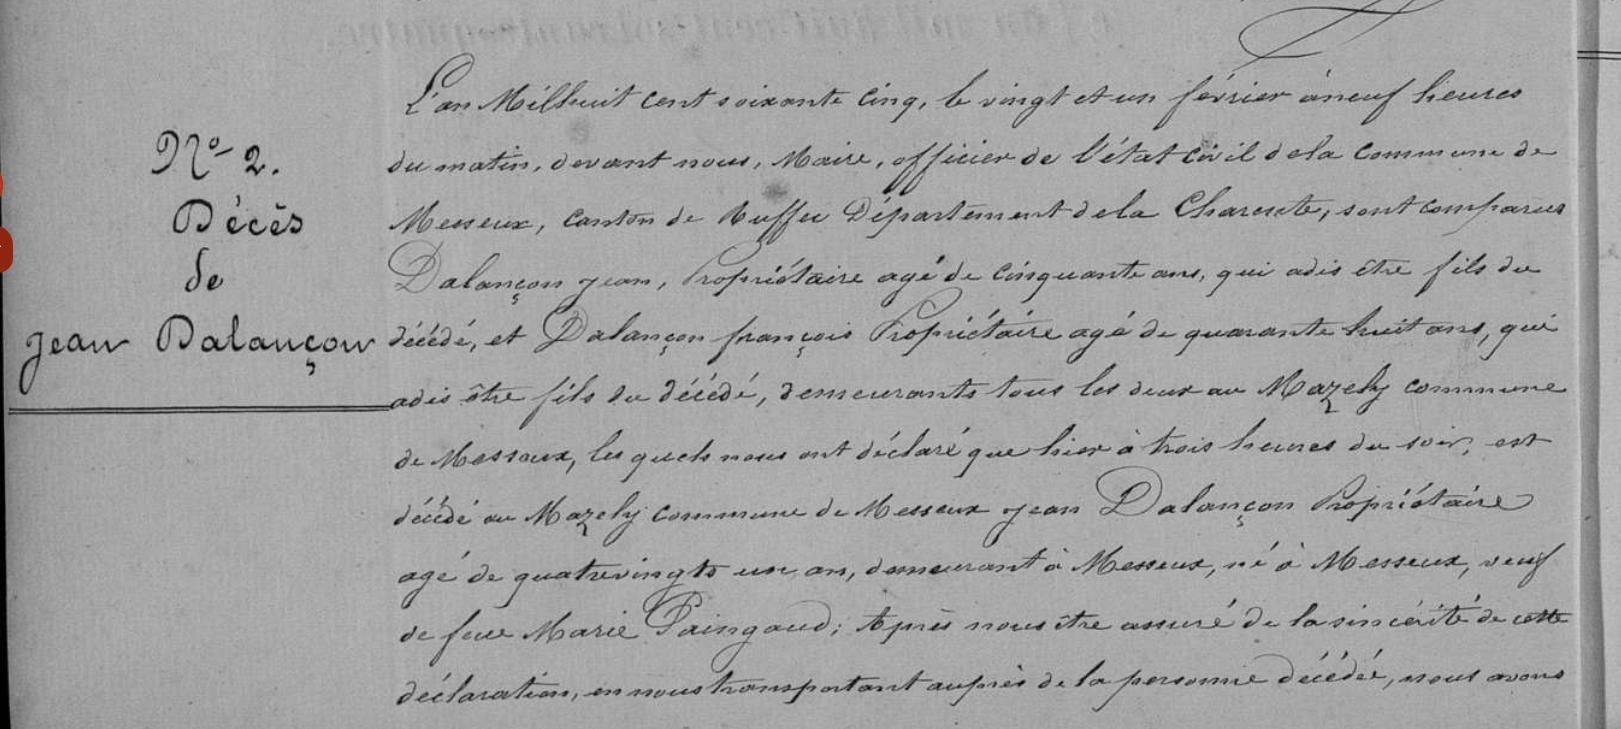 Nº 2.
Décès
de
Jean Dalançon
L'an Mil huit cent soixante cinq, le vingt et un février à neuf heures
du matin, devant nous, Maire, officier de l'état civil de la commune de
Messeux, canton de Ruffec Département de la Charente, sont comparus
Dalançon Jean, Propriétaire agé de cinquante ans, qui a dis être fils du
décédé, et Dalançon françois Propriétaire agé de quarante huit ans, qui
a dis être fils du décédé, demeurants tous les deux au Mazely commune
de Messeux, les quels nous ont déclaré que hier à trois heures du soir, est
décédé au Mazely commune de Messeux Jean Dalançon Propriétaire
agé de quatrevingts un an, demeurant à Messeux, né à Messeux, veuf
de feue Marie Paingaud; Après nous être assuré de la sincérité de cette
déclaration, en nous transportant auprès de la personne décédée, nous avons